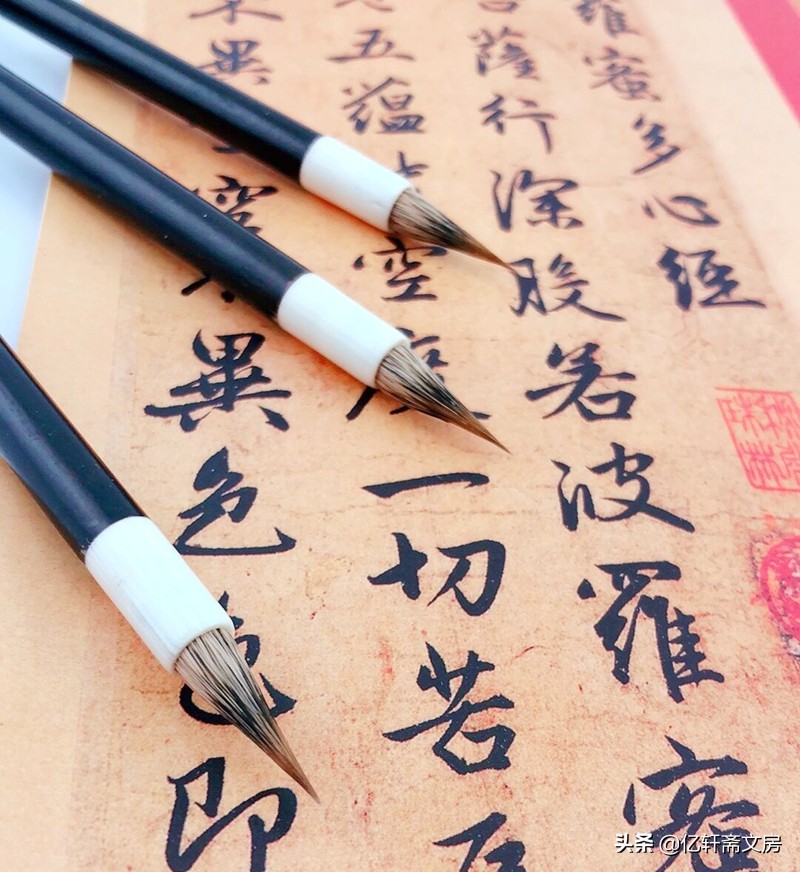 羅蜜多心經
菩薩行深般若波羅蜜
五蘊皆空度一切苦厄
異空空不異色色即
头条 @亿轩斋文房